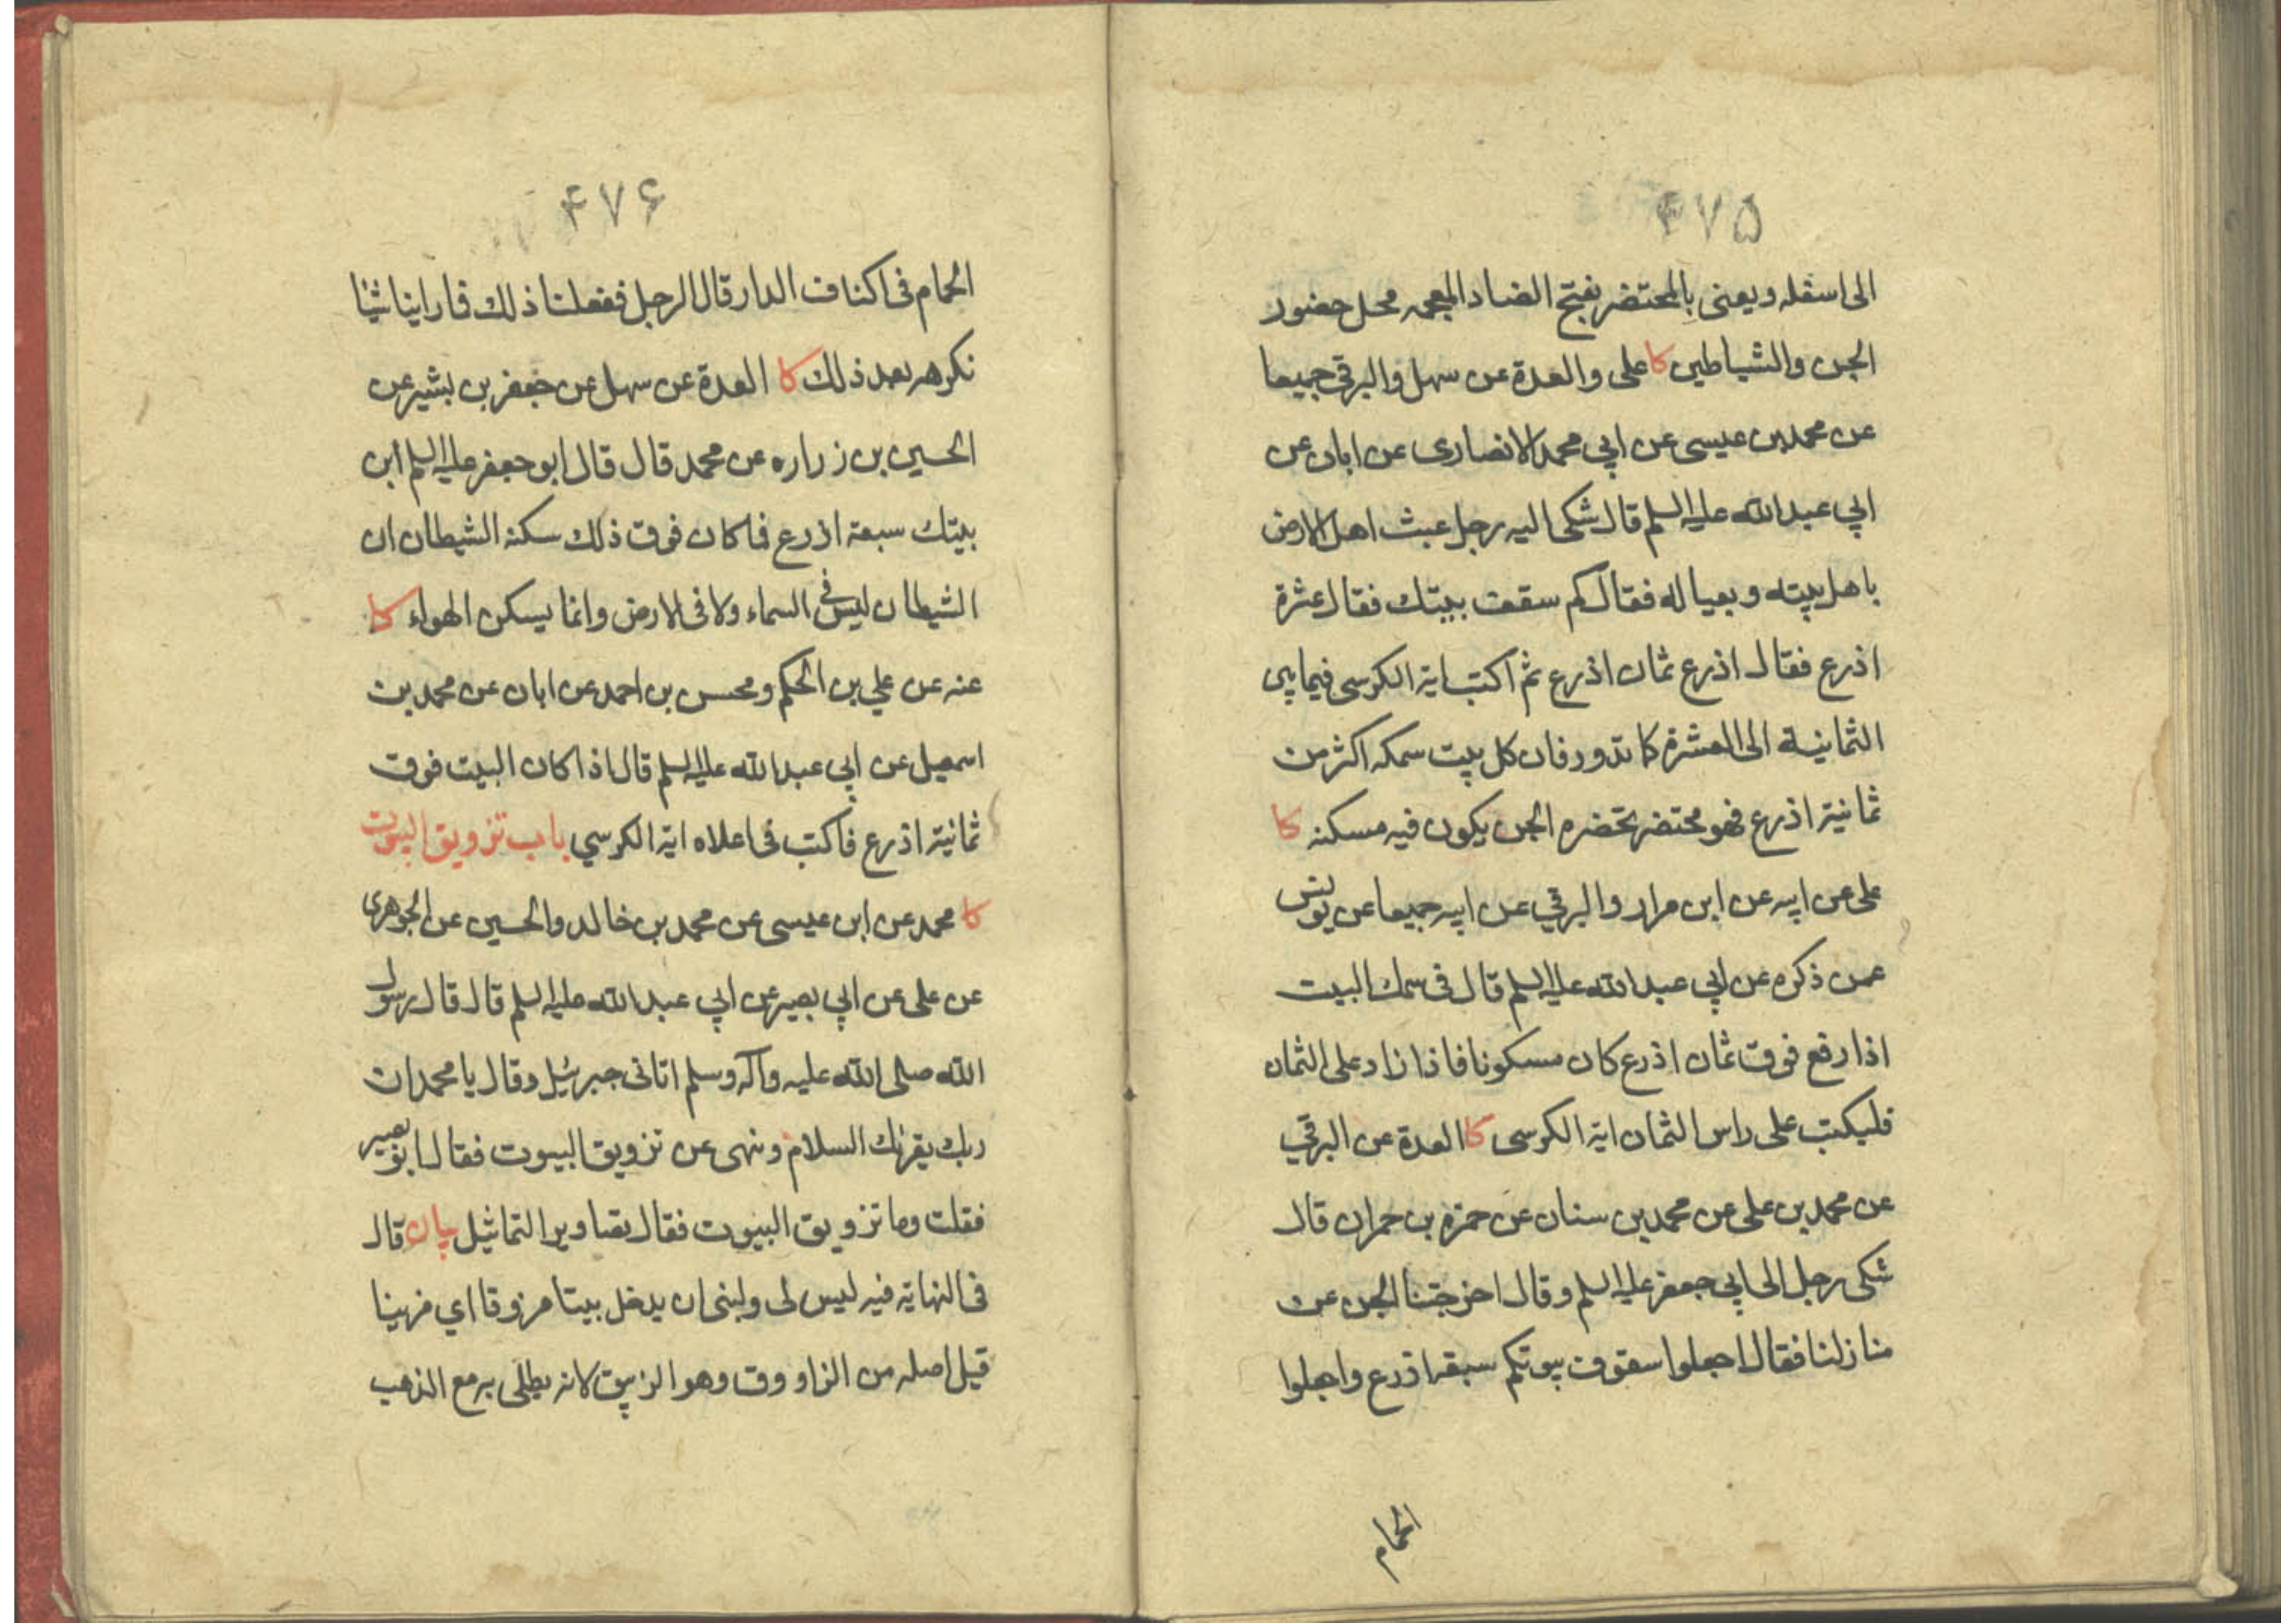 ۴۷۵
الى اسفله ويعنى بالمحتضر بفتح الضاد المعجمه محل حضور
الجن والشياطين كا على والعدة عن سهل والبرقى جميعا
عن محمد بن عيسى عن ابي محمد الانصارى عن ابان عن
ابي عبد الله عليه السلم قال شكى اليه رجل عبث اهل الارض
باهل بيته وبعياله فقال كم سقف بيتك فقال عشرة
اذرع فقال اذرع ثمان اذرع ثم اكتب اية الكرسى فيما بين
الثمانية الى العشرة كما تدور فان كل بيت سمكه اكثر من
ثمانية اذرع فهو محتضر تحضره الجن يكون فيه مسكنه كا
على عن ابيه عن ابن مرار والبرقي عن ابيه جميعا عن يونس
عمن ذكره عن ابي عبد الله عليه السلم قال فى سمك البيت
اذا رفع فوق ثمان اذرع كان مسكونا فاذا زاد على الثمان
فليكتب على راس الثمان اية الكرسى كا العدة عن البرقي
عن محمد بن على عن محمد بن سنان عن حمزة بن حمران قال
شكى رجل الى ابي جعفر عليه السلم وقال اخرجتنا الجن عن
منازلنا فقال اجعلوا سقوف بيوتكم سبعة اذرع واجعلوا
الحمام
۴۷۶
الحمام فى اكناف الدار قال الرجل ففعلنا ذلك فما راينا شيئا
نكرهه بعد ذلك كا العدة عن سهل عن جعفر بن بشير عن
الحسين بن زراره عن محمد قال قال ابو جعفر عليه السلم ابن
بيتك سبعة اذرع فما كان فوق ذلك سكنه الشيطان ان
الشيطان ليس فى السماء ولا فى الارض وانما يسكن الهواء كا
عنه عن علي بن الحكم ومحسن بن احمد عن ابان عن محمد بن
اسمعيل عن ابي عبد الله عليه السلم قال اذا كان البيت فوق
ثمانية اذرع فاكتب فى اعلاه اية الكرسي باب تزويق البيوت
كا محمد عن ابن عيسى عن محمد بن خالد والحسين عن الجوهرى
عن على عن ابي بصير عن ابي عبد الله عليه السلم قال قال رسول
الله صلى الله عليه وآله وسلم اتانى جبرئيل وقال يا محمد ان
ربك يقرئك السلام وينهى عن تزويق البيوت فقال ابو بصير
فقلت وما تزويق البيوت فقال تصاوير التماثيل بيان قال
فى النهاية فيه ليس لى ولنبى ان يدخل بيتا مزوقا اي مزينا
قيل اصله من الزاووق وهو الزيبق لانه يطلى به مع الذهب